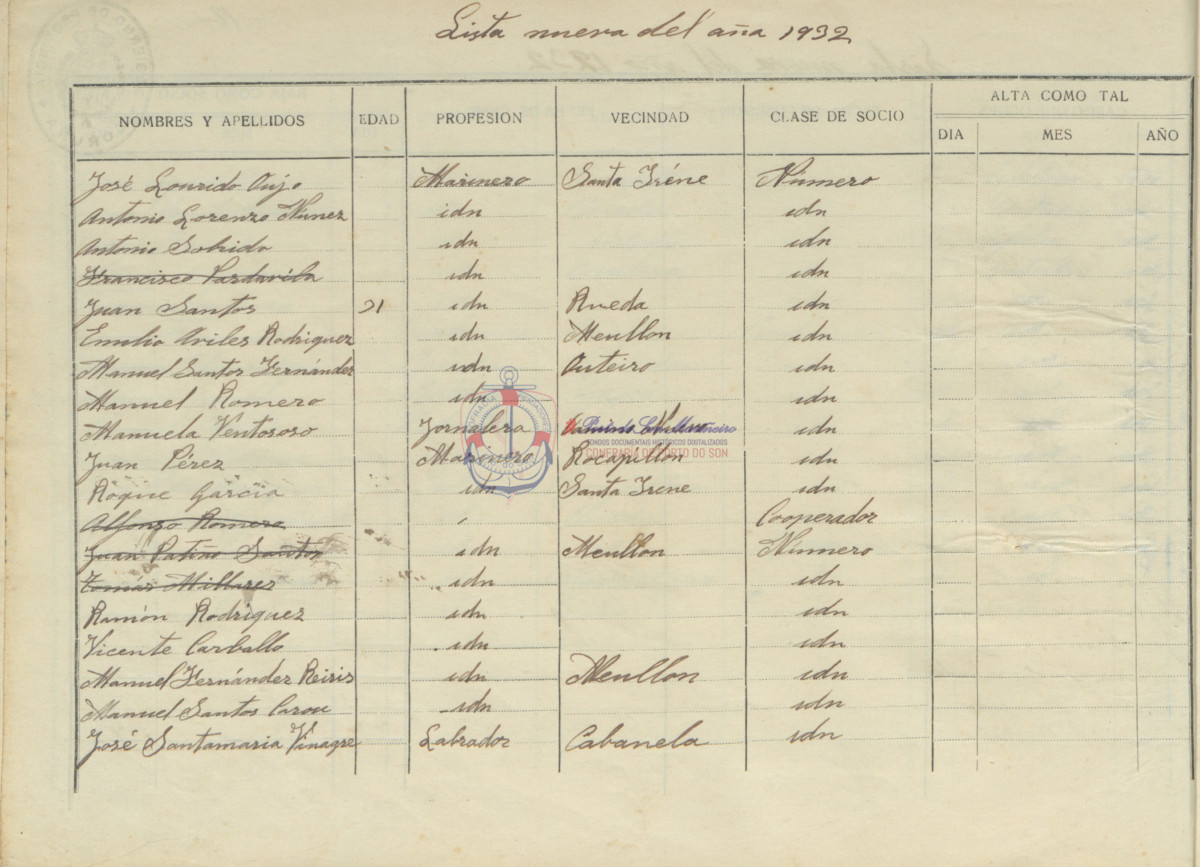 Lista nueva del año 1932
NOMBRES Y APELLIDOS EDAD PROFESION VECINDAD CLASE DE SOCIO ALTA COMO TAL
DIA MES AÑO
José Lourido Marinero Santa Iréne Número
Antonio Lorenzo Núnez idn idn
Antonio Sobrido idn idn
Francisco Pardavila idn idn
Juan Santos 21 idn Rueda idn
Emilio Aviles Rodriguez idn Meullon idn
Manuel Santos Fernández idn Outeiro idn
Manuel Romero idn idn
Manuela Ventososo Jornalera idn
Juan Pérez Marinero Rocapillon idn
Roque García idn Santa Irene idn
Alfonso Romero Cooperador
Juan Patiño Santos idn Meullon Número
Tomás Millares idn idn
Ramón Rodriguez idn idn
Vicente Carballo idn idn
Manuel Fernández Reiris idn Meullon idn
Manuel Santos Carou idn idn
José Santamaria Vinagre Labrador Cabanela idn
FONDOS DOCUMENTAIS HISTÓRICOS DIXITALIZADOS
CONFRARÍA DE PORTO DO SON